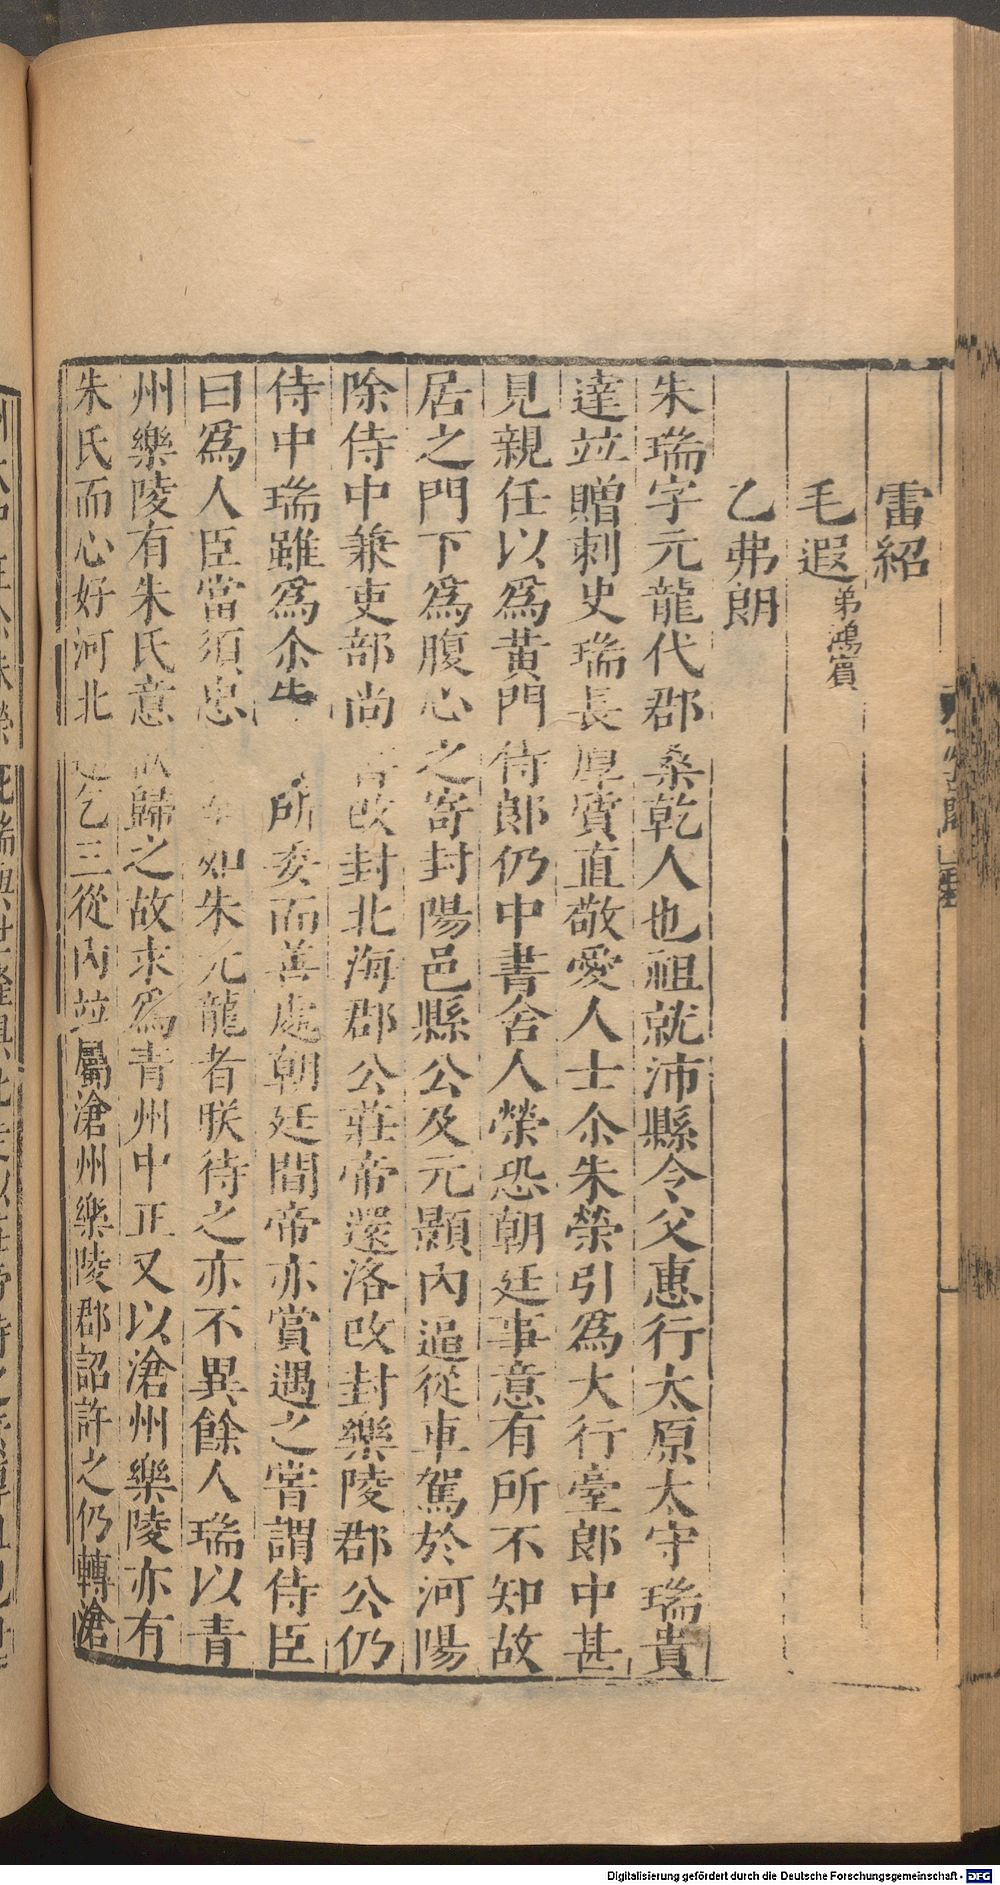 雷紹
毛遐弟鴻賓
乙弗朗
朱瑞字元龍代郡桑乾人也祖就沛縣令父惠行太原太守瑞貴
達並贈刺史瑞長厚質直敬愛人士尒朱榮引為大行臺郎中甚
見親任以為黄門侍郎仍中書舍人榮恐朝廷事意有所不知故
居之門下為腹心之寄封陽邑縣公及元顥內逼從車駕於河陽
除侍中兼吏部尚書改封北海郡公莊帝還洛改封樂陵郡公仍
侍中瑞雖為尒朱所委而善處朝廷間帝亦賞遇之嘗謂侍臣
曰為人臣當須忠如朱元龍者朕待之亦不異餘人瑞以青
州樂陵有朱氏意歸之故求為青州中正又以滄州樂陵亦有
朱氏而心好河北乞三從內並屬滄州樂陵郡詔許之仍轉滄
Digitalisierung gefördert durch die Deutsche Forschungsgemeinschaft - DFG